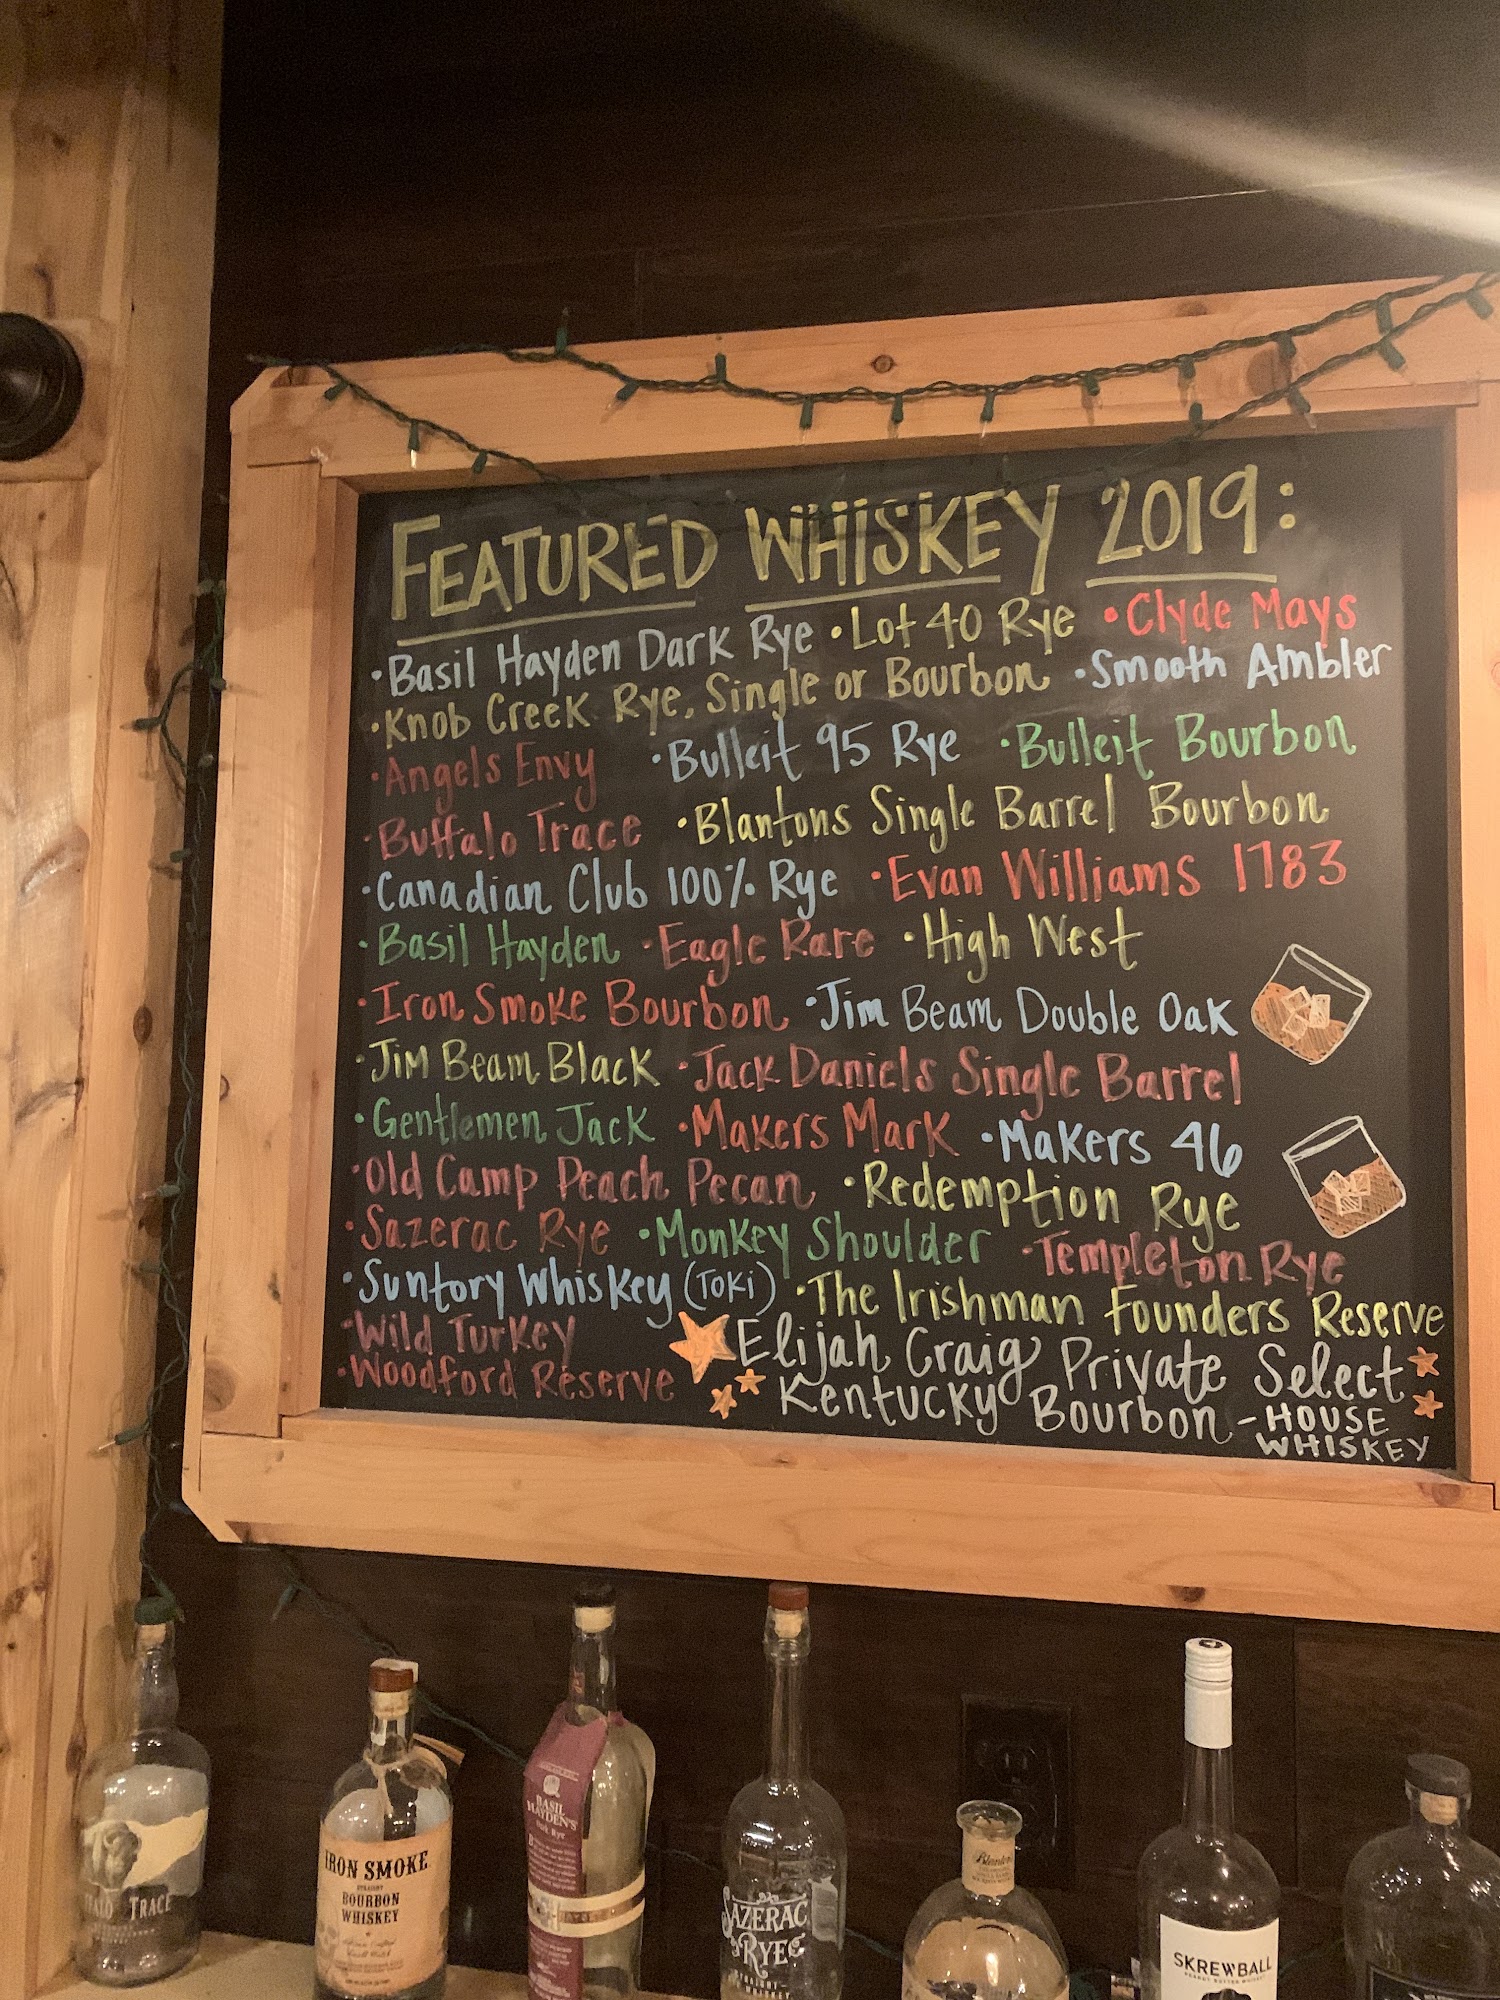 FEATURED WHISKEY 2019:
•Basil Hayden Dark Rye •Lot 40 Rye •Clyde Mays
•Knob Creek Rye, Single or Bourbon •Smooth Ambler
•Angels Envy •Bulleit 95 Rye •Bulleit Bourbon
•Buffalo Trace •Blantons Single Barrel Bourbon
•Canadian Club 100% Rye •Evan Williams 1783
•Basil Hayden •Eagle Rare •High West
•Iron Smoke Bourbon •Jim Beam Double Oak
•Jim Beam Black •Jack Daniels Single Barrel
•Gentlemen Jack •Makers Mark •Makers 46
•Old Camp Peach Pecan •Redemption Rye
•Sazerac Rye •Monkey Shoulder •Templeton Rye
•Suntory Whiskey (Toki) •The Irishman Founders Reserve
•Wild Turkey Elijah Craig Private Select
•Woodford Reserve Kentucky Bourbon - HOUSE
WHISKEY
TRACE
IRON SMOKE
STRAIGHT
BOURBON
WHISKEY
BASIL
HAYDEN'S
Dark Rye
SAZERAC
RYE
STRAIGHT
WHISKEY
SKREWBALL
PEANUT BUTTER WHISKEY